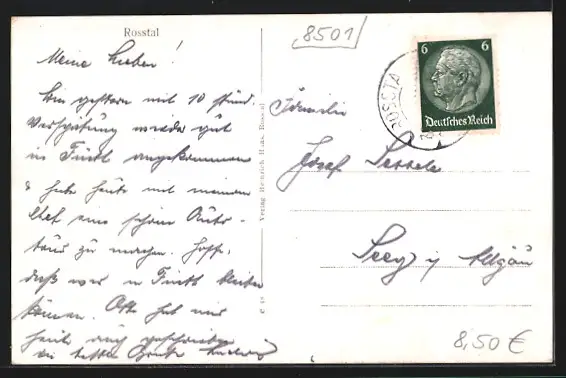 Rosstal
8501
Meine Lieben!
Bin gestern mit 10 stünd.
Verspätung wieder gut
in Fürth angekommen
& habe heute mit meinem
Chef eine schöne Auto-
tour zu machen. Hoffe,
daß wir in Fürth bleiben
können. Otto hat mir
heute auch geschrieben
die besten Grüße Ludwig
Verlag Heinrich Haas, Rosstal
6 6
Deutsches Reich
ROSSTA
Familie
Josef
Seeg i/ Allgäu
8,50 €